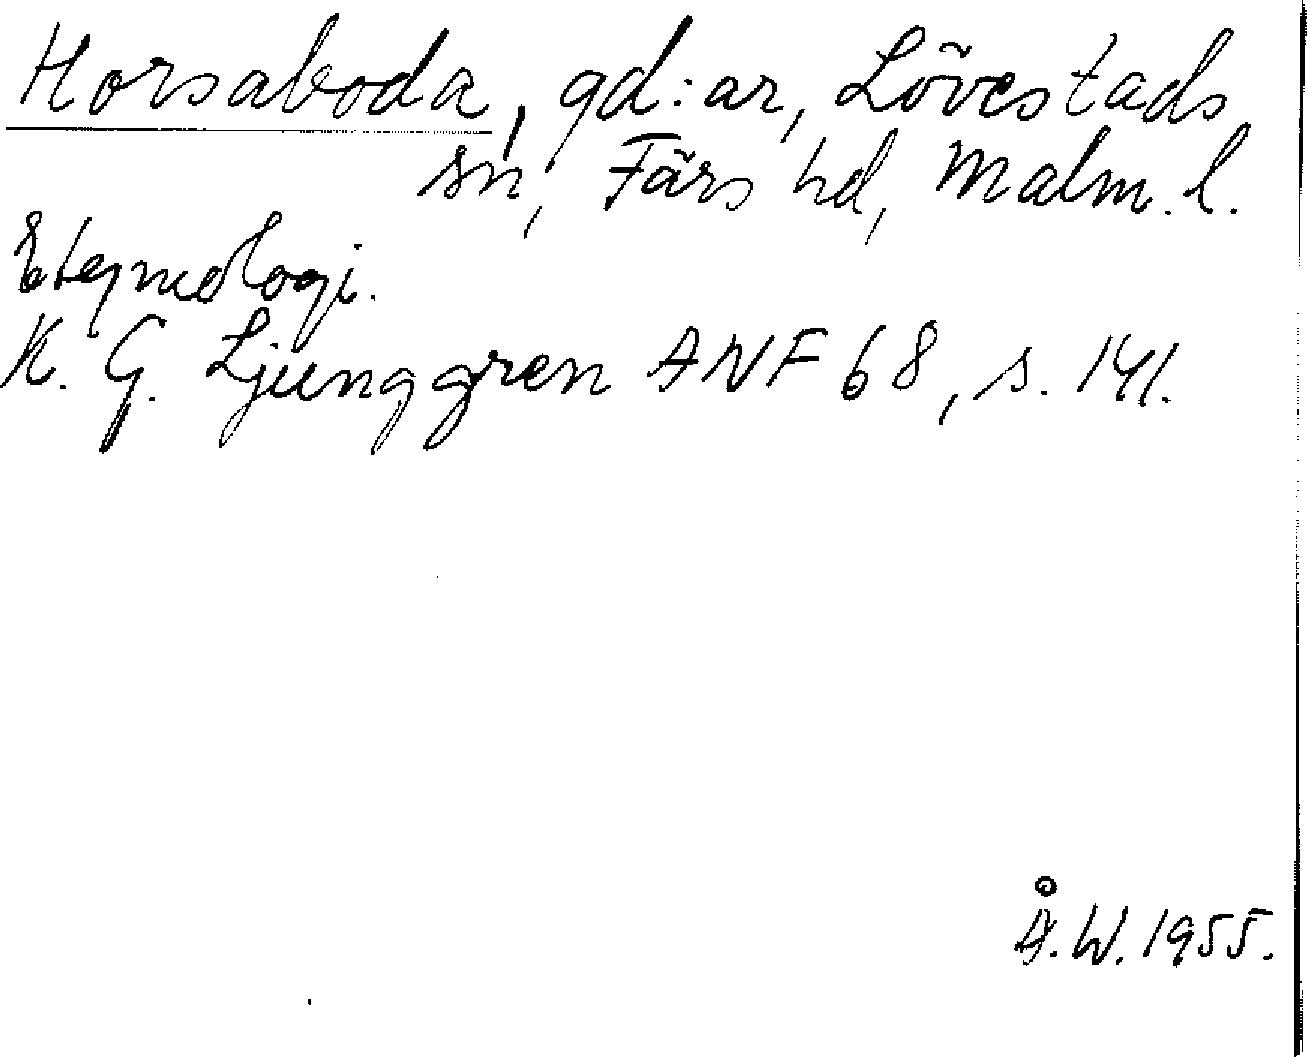 Horsaboda, gd:ar, Lövestads
sn, Färs hd, Malm. l.
Etymologi.
K. G. Ljunggren ANF 68, s. 141.
Å. W. 1955.